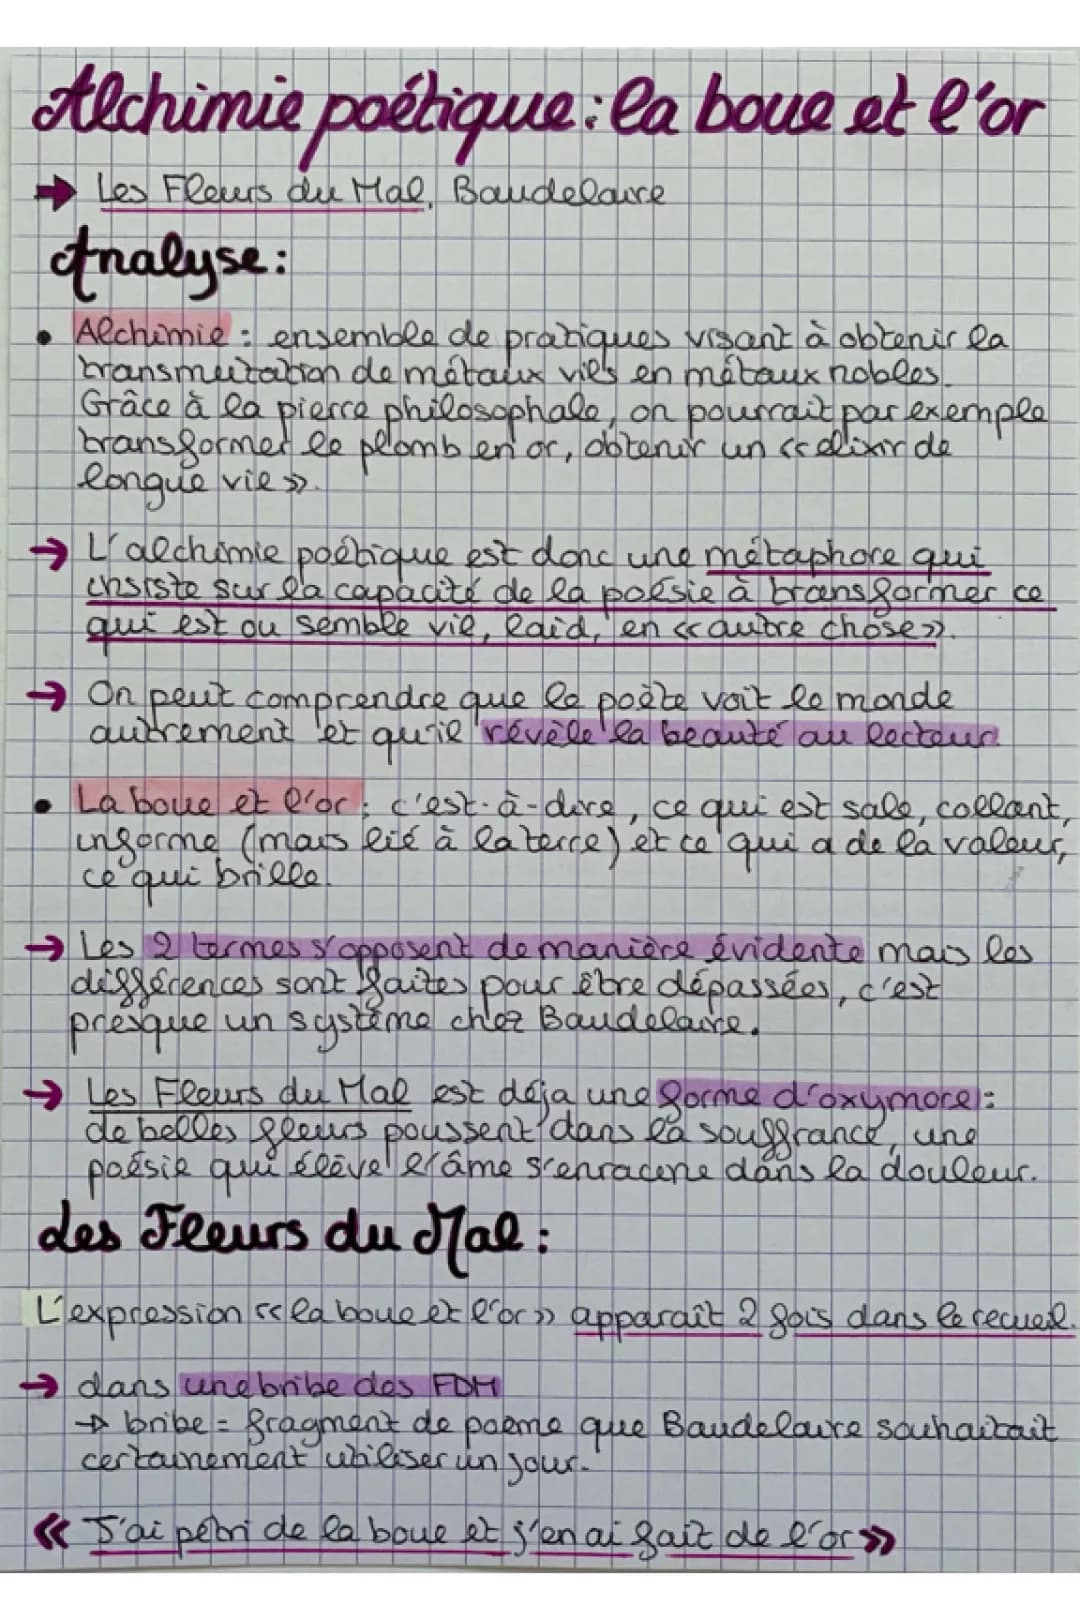 Alchimie poétique : la boue et l'or
→ Les Fleurs du Mal, Baudelaire
Analyse :
• Alchimie : ensemble de pratiques visant à obtenir la
transmutation de métaux vils en métaux nobles.
Grâce à la pierre philosophale, on pourrait par exemple
transformer le plomb en or, obtenir un « élixir de
longue vie ».
→ L'alchimie poétique est donc une métaphore qui
insiste sur la capacité de la poésie à transformer ce
qui est ou semble vil, laid, en « autre chose ».
→ On peut comprendre que le poète voit le monde
autrement et qu'il révèle la beauté au lecteur.
• La boue et l'or : c'est-à-dire, ce qui est sale, collant,
informe (mais lié à la terre) et ce qui a de la valeur,
ce qui brille.
→ Les 2 termes s'opposent de manière évidente mais les
différences sont faites pour être dépassées, c'est
presque un système chez Baudelaire.
→ Les Fleurs du Mal est déja une forme d'oxymore :
de belles fleurs poussent dans la souffrance, une
poésie qui élève l'âme s'enracine dans la douleur.
Les Fleurs du Mal :
L'expression « la boue et l'or » apparaît 2 fois dans le recueil.
→ dans une bribe des FDM
→ bribe = fragment de poème que Baudelaire souhaitait
certainement utiliser un jour.
« J'ai pétri de la boue et j'en ai fait de l'or »